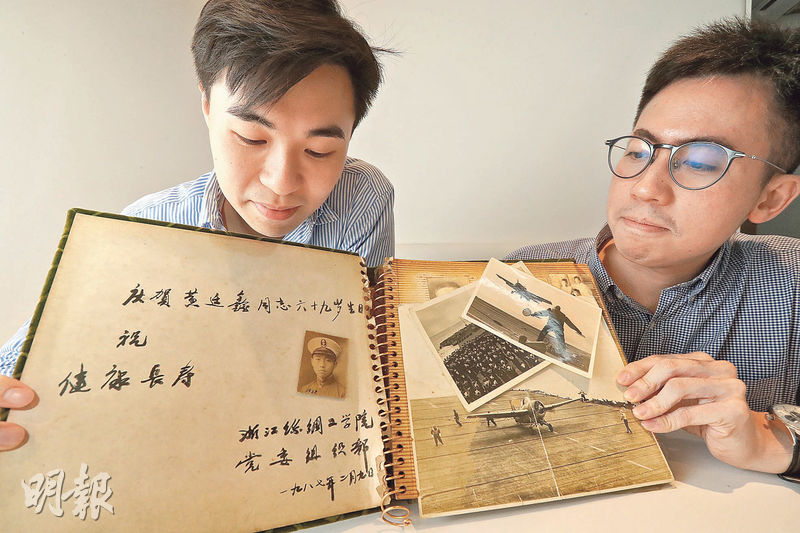 庆贺黄廷鑫同志六十九岁生日
祝
健康長寿
浙江丝绸工学院
党委组织部
一九八七年二月九日
明報